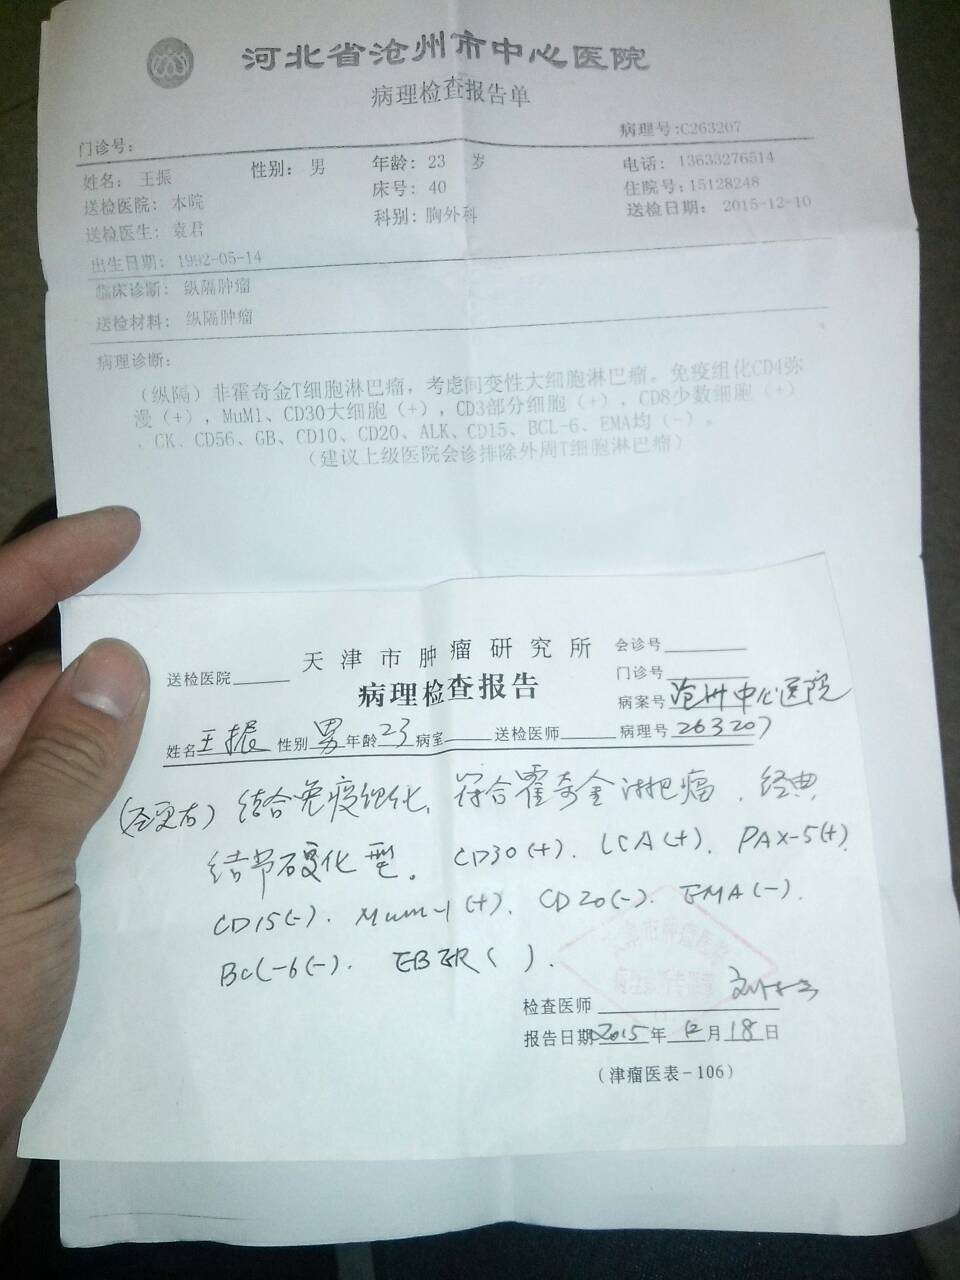 河北省沧州市中心医院
病理检查报告单
门诊号: 病理号:C263207
姓名: 王振 性别: 男 年龄: 23 岁 电话: 13633276514
送检医院: 本院 床号: 40 住院号:15128248
送检医生: 袁君 科别: 胸外科 送检日期: 2015-12-10
出生日期: 1992-05-14
临床诊断: 纵隔肿瘤
送检材料: 纵隔肿瘤
病理诊断:
(纵隔)非霍奇金T细胞淋巴瘤，考虑间变性大细胞淋巴瘤。免疫组化CD4弥
漫(+)，MuM1、CD30大细胞(+)，CD3部分细胞(+)，CD8少数细胞(+)
、CK、CD56、GB、CD10、CD20、ALK、CD15、BCL-6、EMA均(-)。
(建议上级医院会诊排除外周T细胞淋巴瘤)
天津市肿瘤研究所
病理检查报告
送检医院 会诊号
门诊号
病案号 沧州中心医院
姓名 王振 性别 男 年龄 23 病室 送检医师 病理号 263207
结合免疫组化, 符合霍奇金淋巴瘤, 经典
结节硬化型。CD30(+). LCA(+). PAX-5(+)
CD15(-). Mum-1(+). CD20(-). EMA(-).
Bcl-6(-). EBER( ).
检查医师
报告日期 2015年12月18日
(津瘤医表-106)